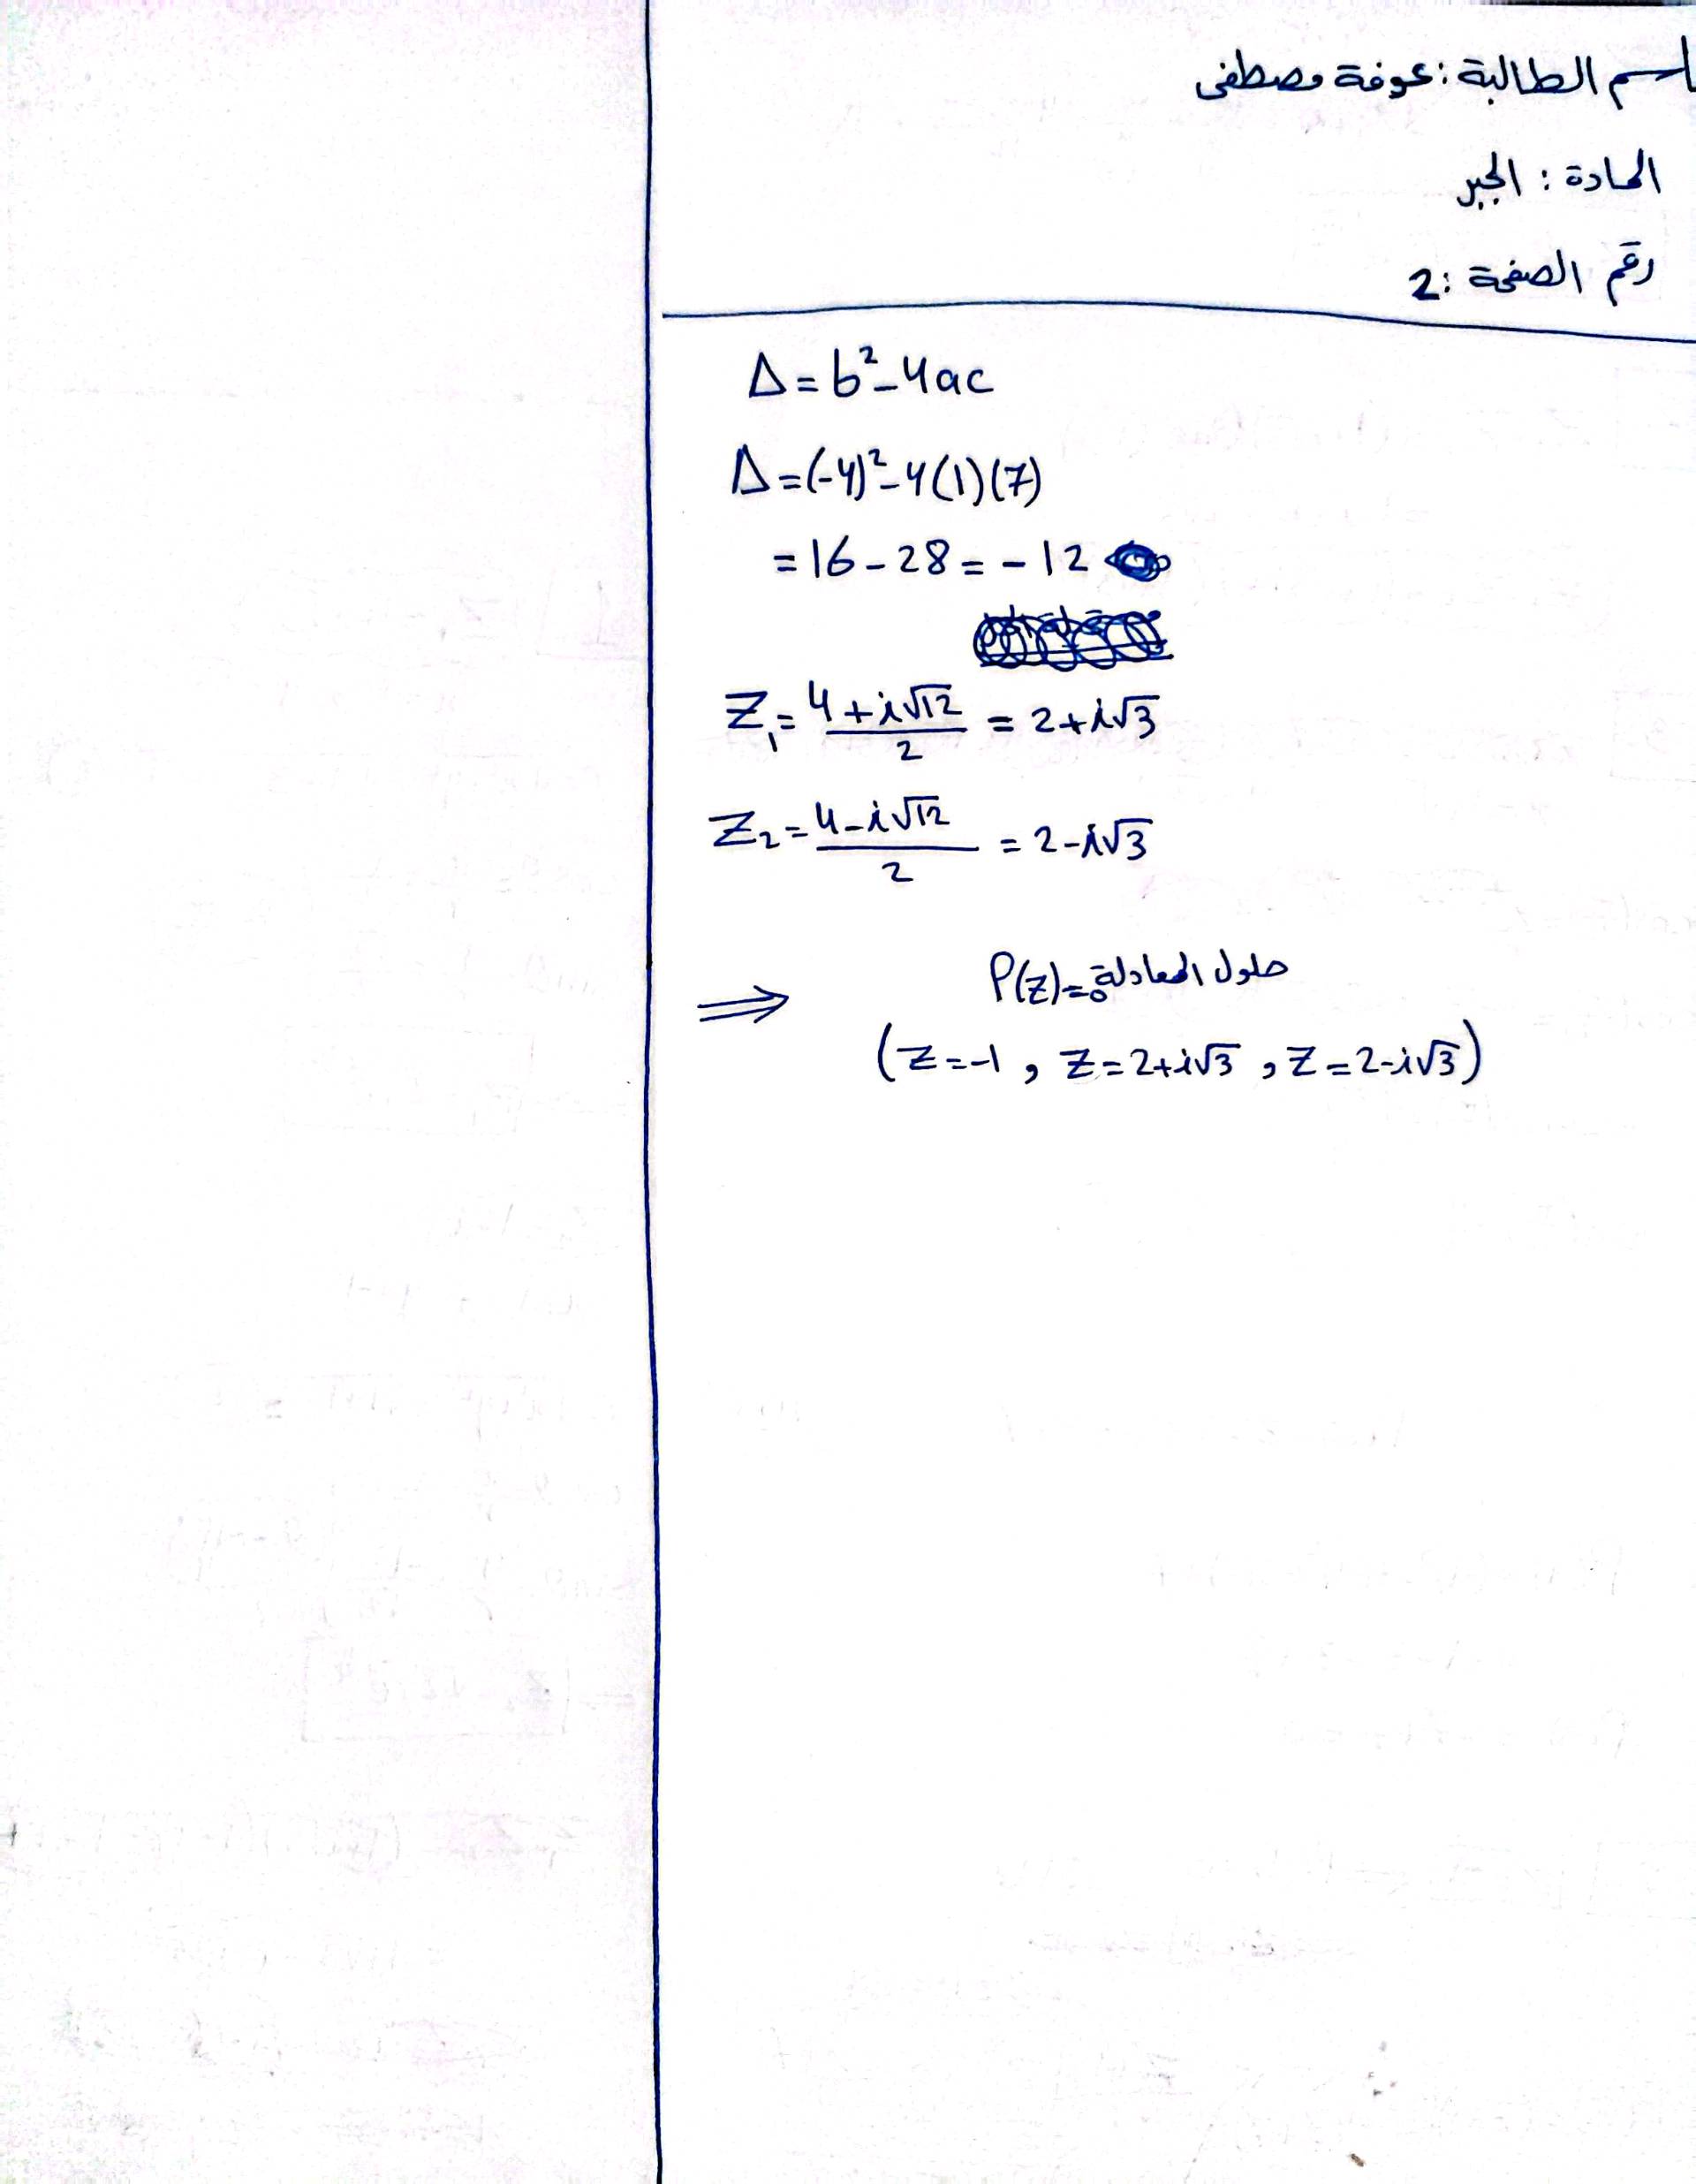 اسم الطالبة: عوفة مصطفى
المادة: الجبر
رقم الصفحة: 2
Δ = b² - 4ac
Δ = (-4)² - 4(1)(7)
= 16 - 28 = - 12
Z₁ = (4 + i√12)/2 = 2 + i√3
Z₂ = (4 - i√12)/2 = 2 - i√3
⇒ حلول المعادلة P(z)=0
(Z = -1 , Z = 2 + i√3 , Z = 2 - i√3)